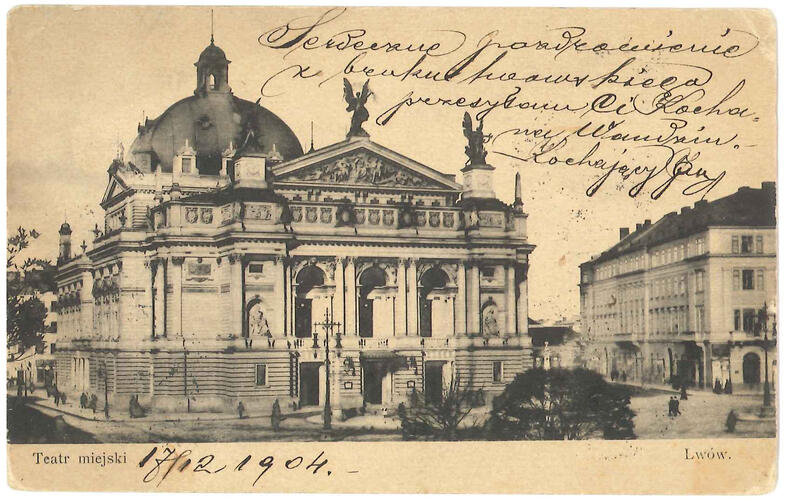 Serdeczne pozdrowienie
z bruku lwowskiego
przesyłam Ci Kocha-
na Wandziu.
Kochający Jan
Teatr miejski 17/12 1904.-
Lwów.